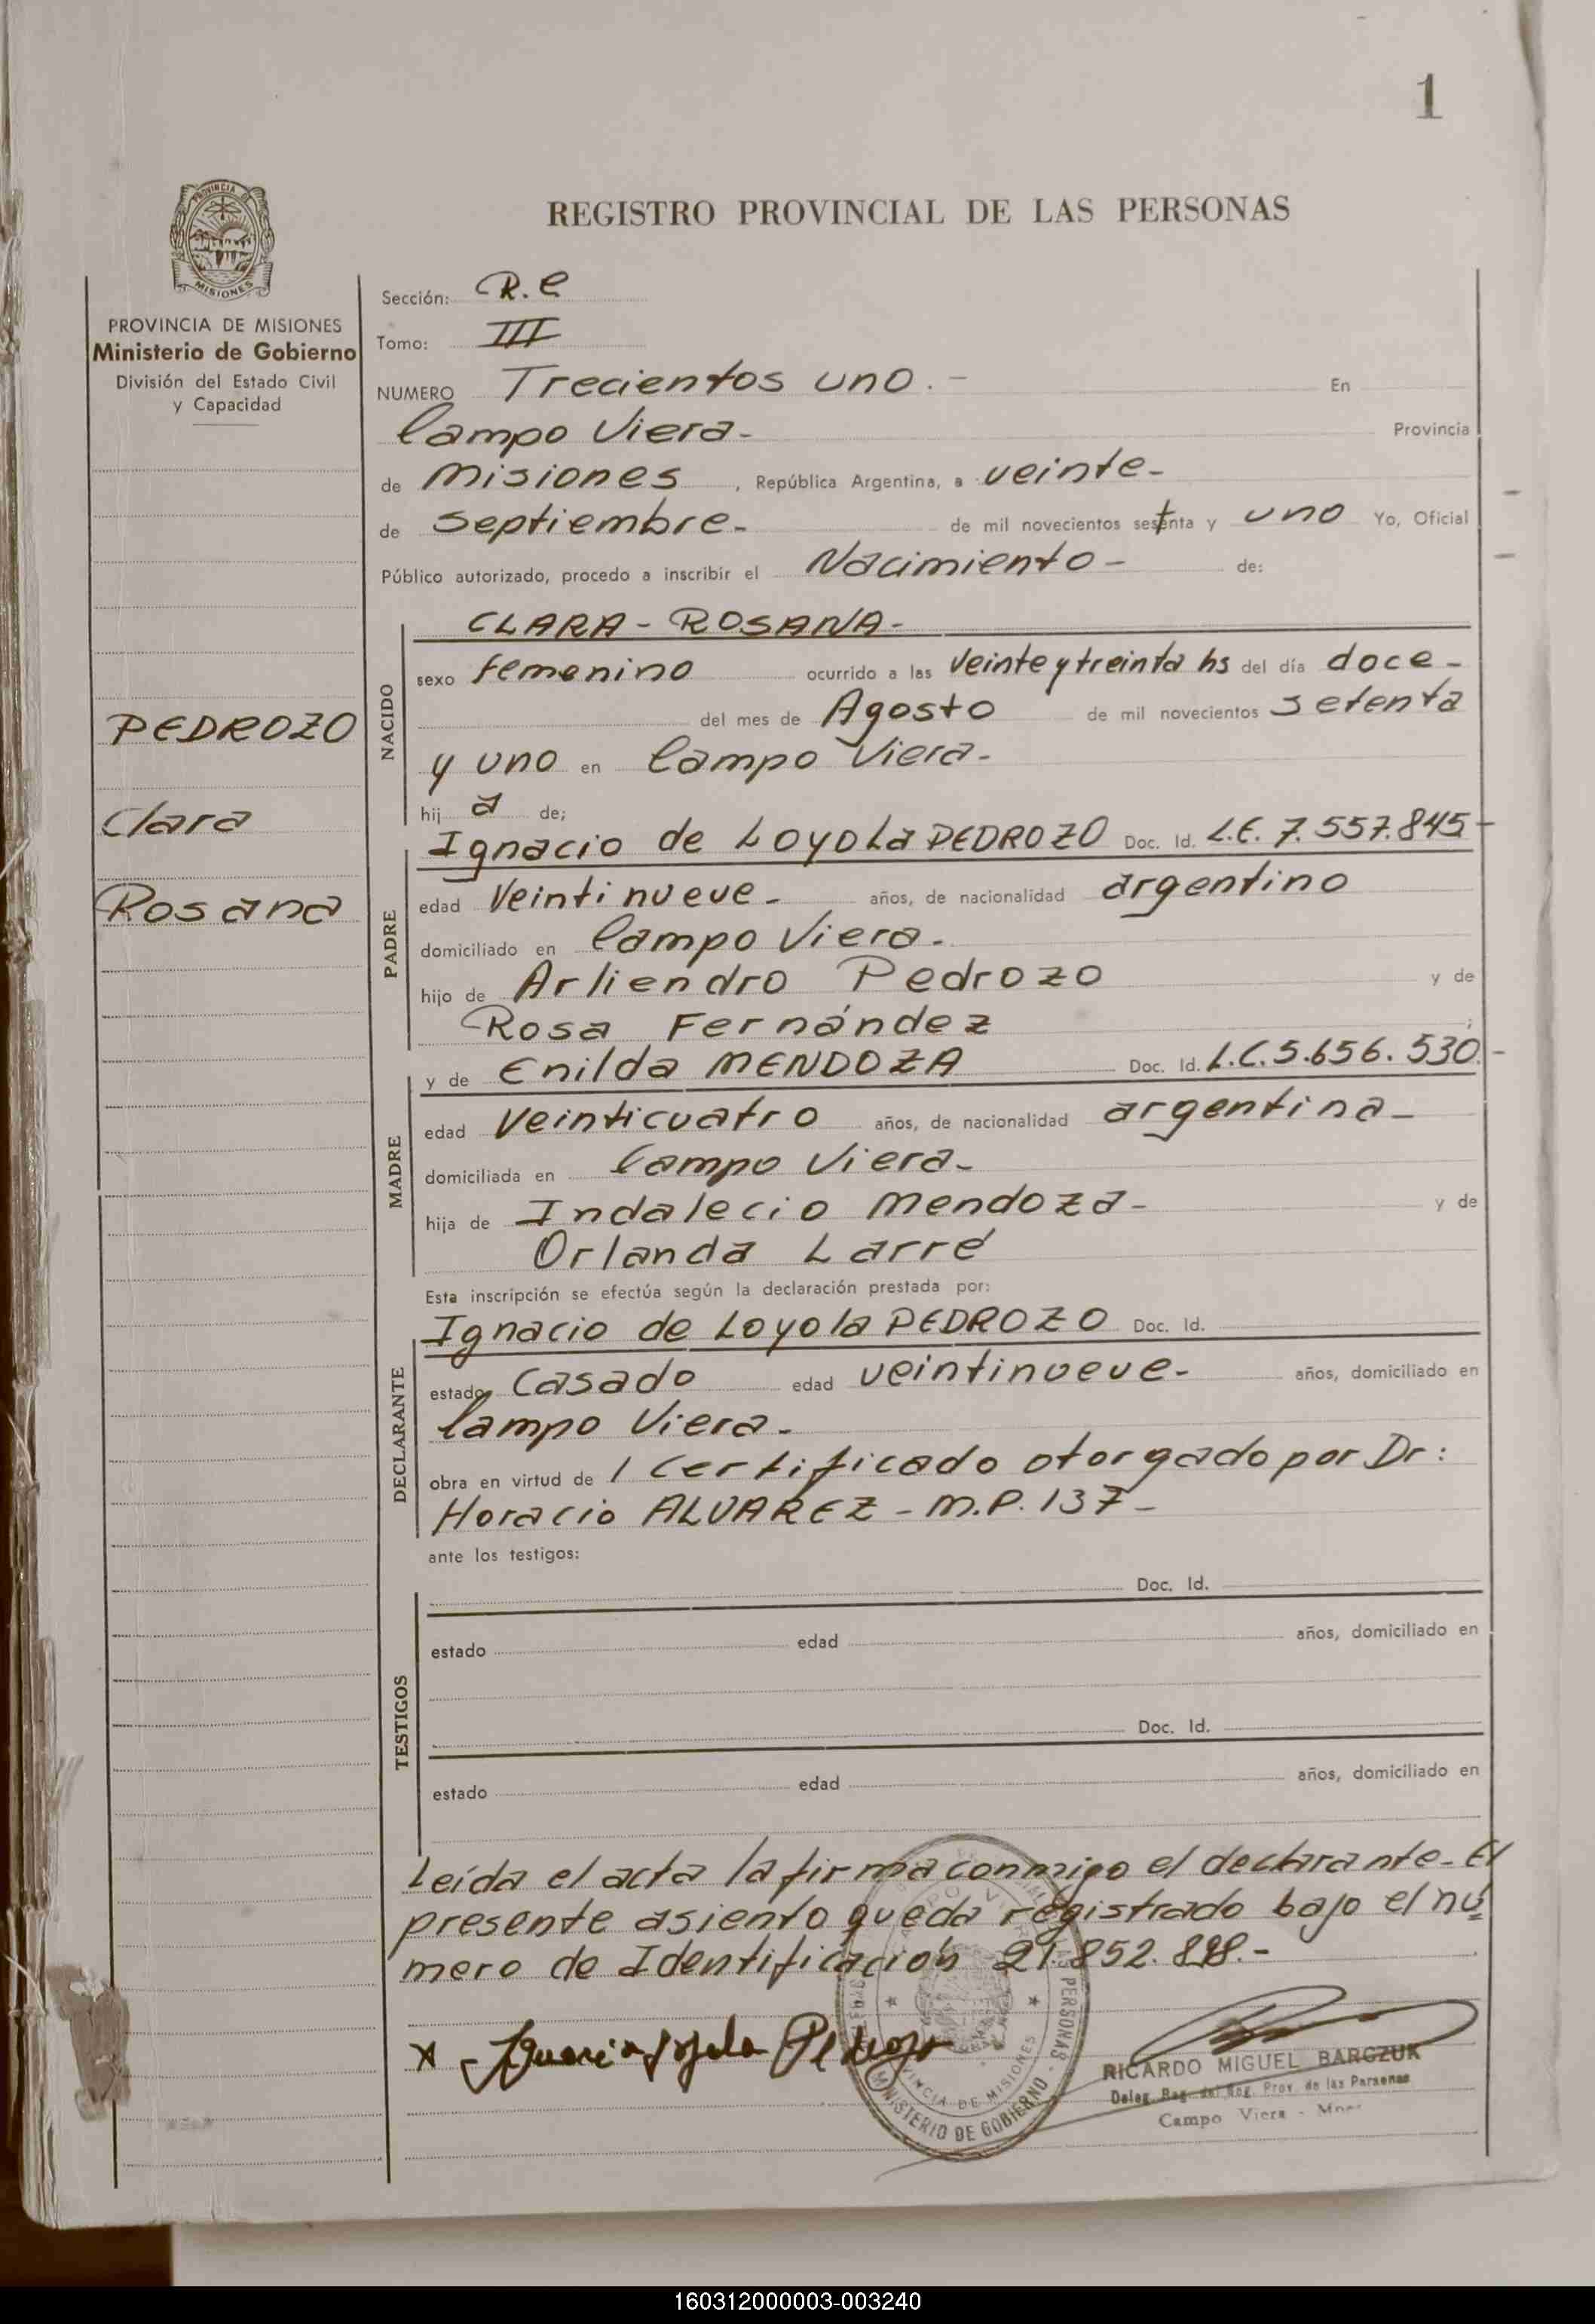 1
REGISTRO PROVINCIAL DE LAS PERSONAS
PROVINCIA DE
MISIONES
PROVINCIA DE MISIONES
Ministerio de Gobierno
División del Estado Civil
y Capacidad
PEDROZO
Clara
Rosana
Sección: R.C
Tomo: III
NUMERO Trecientos uno.- En
Campo Viera- Provincia
de Misiones, República Argentina, a veinte-
de septiembre- de mil novecientos setenta y uno Yo, Oficial
Público autorizado, procedo a inscribir el Nacimiento- de:
NACIDO
CLARA-ROSANA-
sexo femenino ocurrido a las veinte y treinta hs del día doce-
del mes de Agosto de mil novecientos setenta
y uno en Campo Viera-
hija de;
PADRE
Ignacio de Loyola PEDROZO Doc. Id. L.E. 7.557.845-
edad Veintinueve- años, de nacionalidad argentino
domiciliado en Campo Viera.
hijo de Arliendro Pedrozo y de
Rosa Fernández ;
MADRE
y de Enilda MENDOZA Doc. Id. L.C.5.656.530.-
edad Veinticuatro años, de nacionalidad argentina-
domiciliada en Campo Viera-
hija de Indalecio Mendoza- y de
Orlanda Larré
Esta inscripción se efectúa según la declaración prestada por:
DECLARANTE
Ignacio de Loyola PEDROZO Doc. Id.
estado Casado edad veintinueve- años, domiciliado en
Campo Viera-
obra en virtud de 1 Certificado otorgado por Dr:
Horacio ALVAREZ - M.P. 137-
ante los testigos:
TESTIGOS
Doc. Id.
estado edad años, domiciliado en
Doc. Id.
estado edad años, domiciliado en
Leída el acta la firma conmigo el declarante- El
presente asiento queda registrado bajo el nú
mero de Identificación 21.852.
x - Ignacio Loyola Pedrozo
PERSONAS
PROVINCIA DE MISIONES
MINISTERIO DE GOBIERNO
RICARDO MIGUEL BARCZUK
Deleg. Reg. del Reg. Prov. de las Personas
Campo Viera - Mnes
160312000003-003240